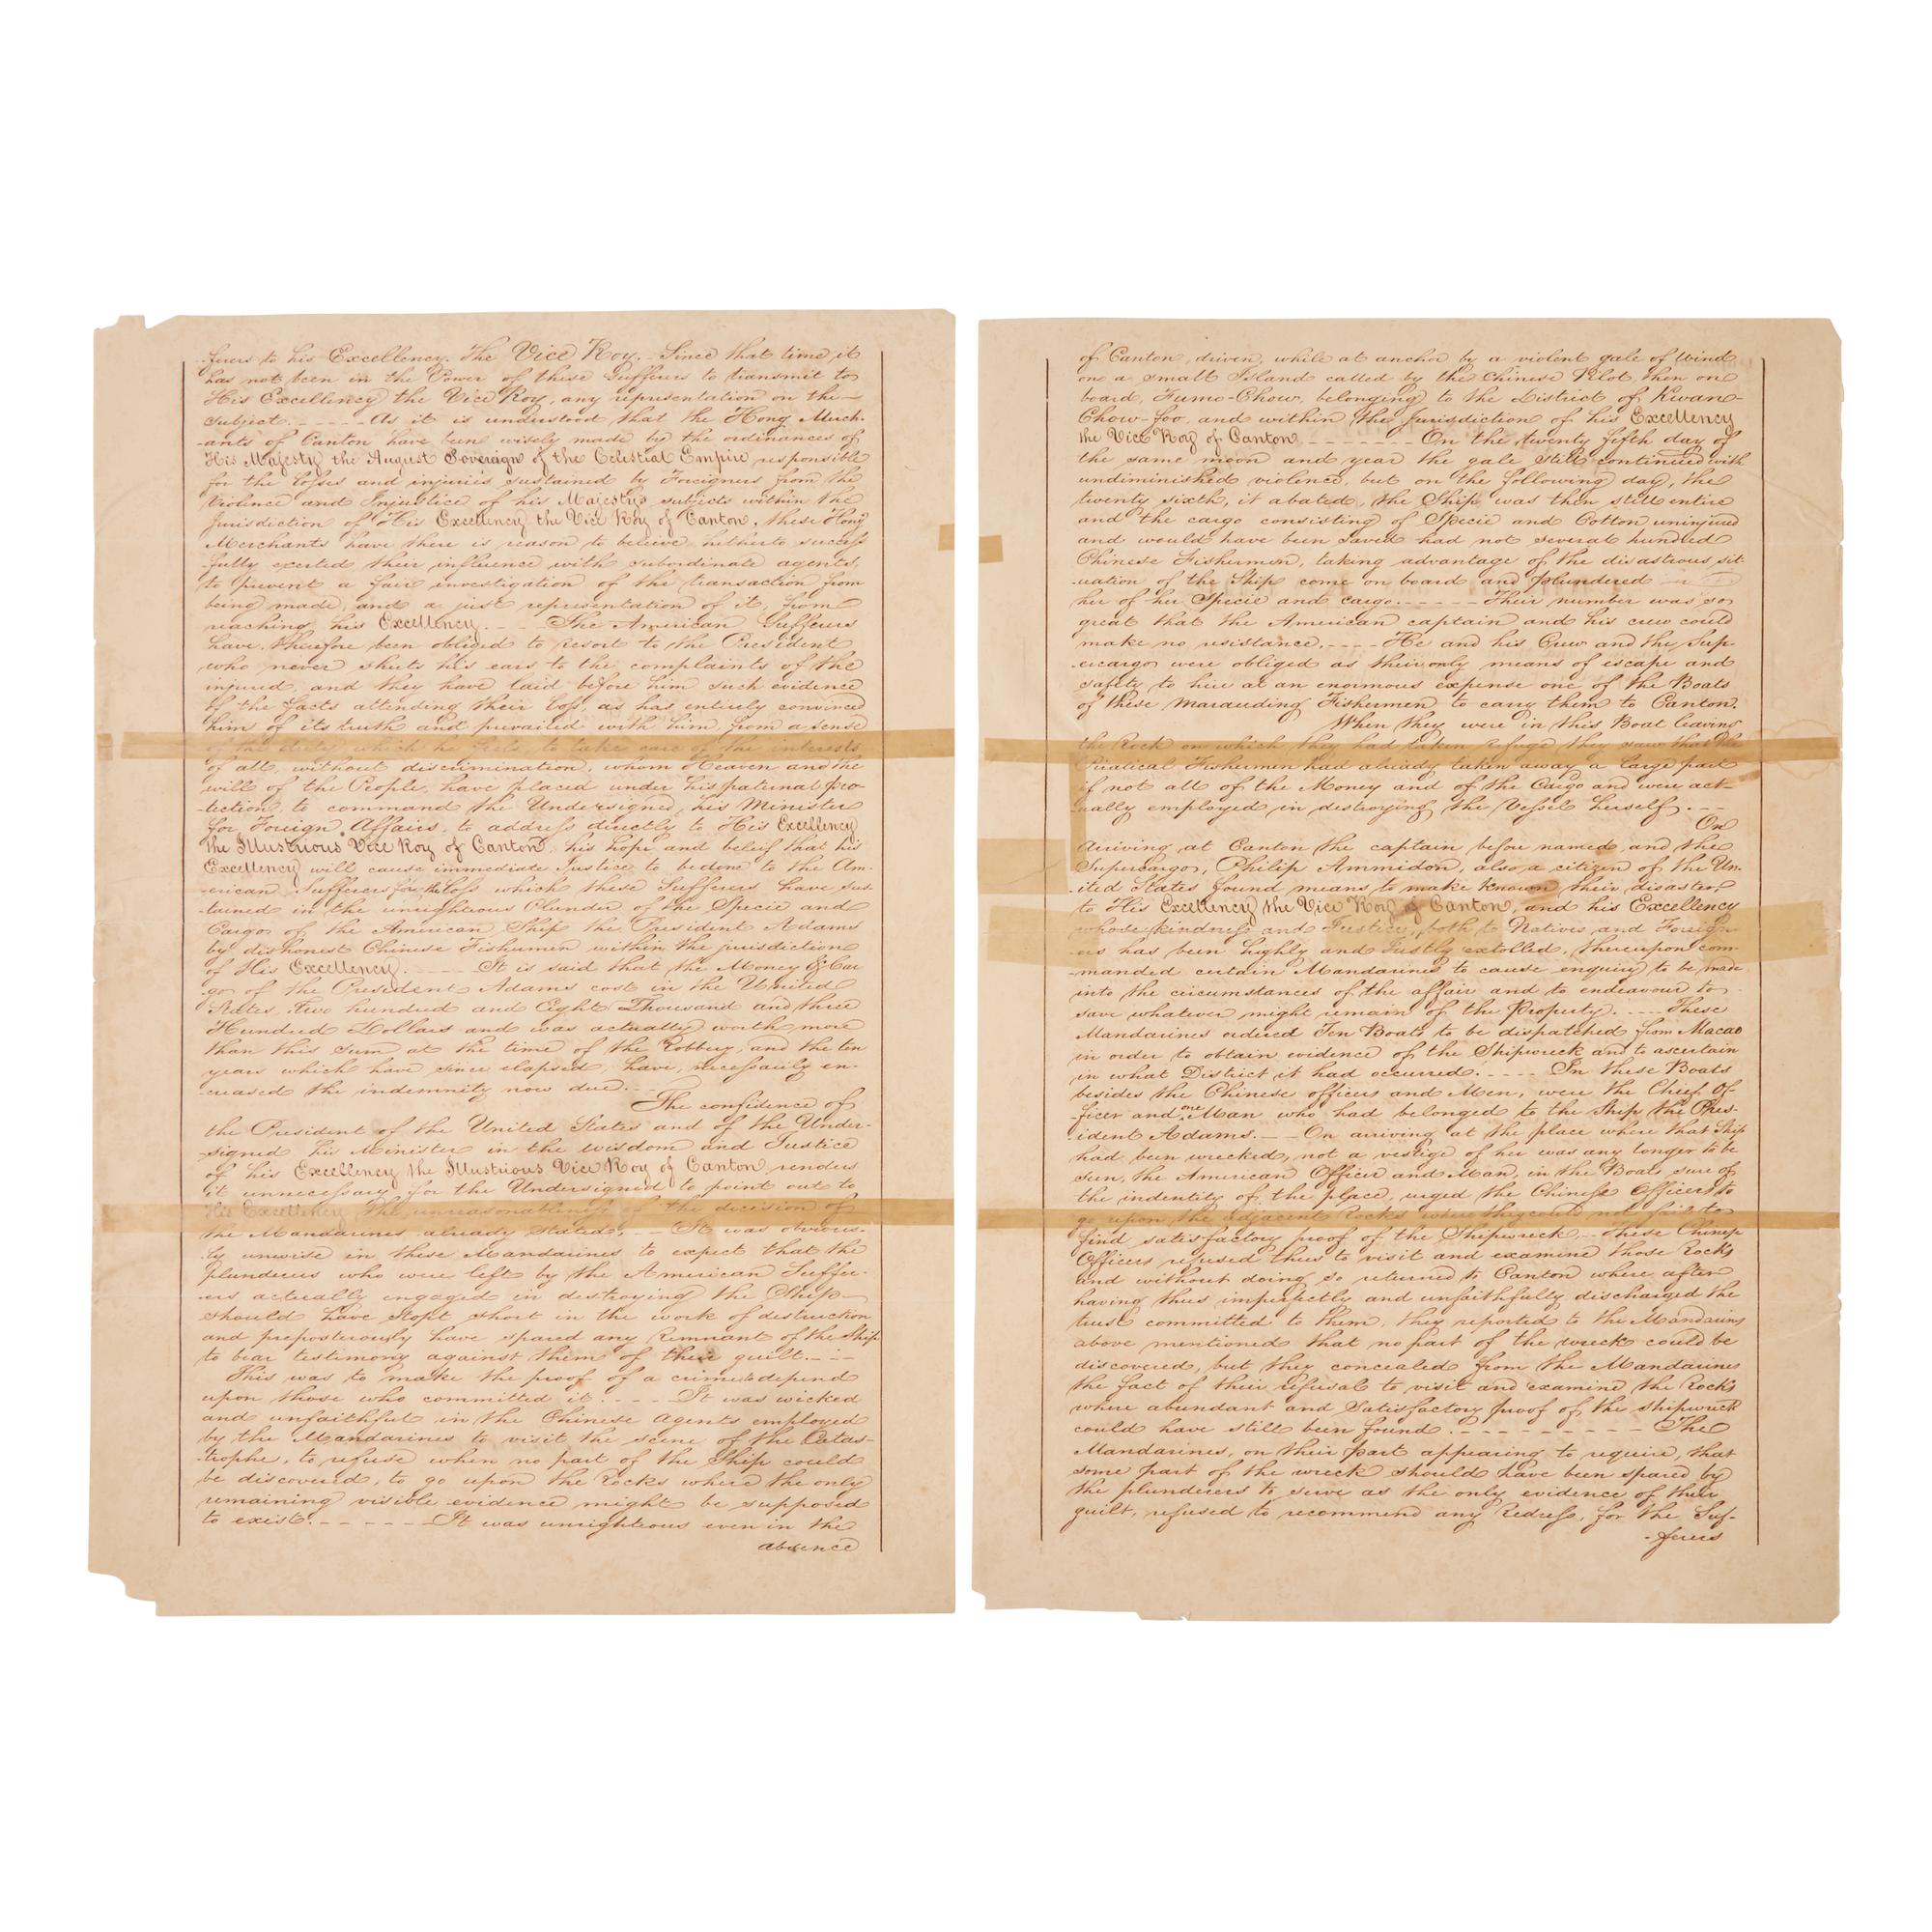 -ferers to his Excellency. The Vice Roy. Since that time it
has not been in the Power of these Sufferers to transmit to
His Excellency the Vice Roy, any representation on the
subject. As it is understood that the Hong Merch-
-ants of Canton have been wisely made by the ordinances of
His Majesty the August Sovereign of the Celestial Empire responsible
for the losses and injuries sustained by Foreigners from the
Violence and Injustice of his Majestys subjects within the
jurisdiction of His Excellency the Vice Roy of Canton, these Hong
Merchants have there is reason to beleive hitherto success
-fully exerted their influence with subordinate agents,
to prevent a fair investigation of the transaction from
being made, and a just representation of it, from
reaching his Excellency. The American Sufferers
have therefore been obliged to resort to the President
who never shuts his ears to the complaints of the
injured, and they have laid before him such evidence
of the facts attending their loss, as has entirely convinced
him of its truth and prevailed with him from a sense
of the duty which he feels, to take care of the interests
of all, without discrimination, whom Heaven and the
will of the People, have placed under his paternal pro-
-tection, to command the Undersigned, his Minister
for Foreign Affairs, to address directly to His Excellency
the Illustrious Vice Roy of Canton, his hope and beleif that his
Excellency will cause immediate Justice to be done to the Am-
-erican Sufferers for the loss which these Sufferers have sus-
-tained in the unrighteous Plunder of the Specie and
Cargo of the American Ship the President Adams
by dishonest Chinese Fishermen within the jurisdiction
of His Excellency. It is said that the Money & Car
-go of the President Adams cost in the United
States, two hundred and Eight Thousand and three
Hundred Dollars and was actually worth more
than this sum at the time of the Robbery, and the ten
years which have since elapsed, have, necessarily en-
-creased the indemnity now due.
The confidence of
the President of the United States and of the Under-
-signed his Minister in the wisdom and Justice
of his Excellency the Illustrious Vice Roy of Canton, renders
it unnecessary for the Undersigned to point out to
His Excellency the unreasonableness of the decision of
the Mandarines already stated. It was obvious-
-ly unwise in these Mandarines to expect that the
plunderers who were left by the American Suffer-
-ers actually engaged in destroying the Ship
should have stopt short in the work of destruction
and preposterously have spared any Remnant of the Ship
to bear testimony against them of their guilt.
This was to make the proof of a crime depend
upon those who committed it. It was wicked
and unfaithful in the Chinese Agents employed
by the Mandarines to visit the scene of the Catas-
-trophe, to refuse when no part of the Ship could
be discovered, to go upon the Rocks where the only
remaining visible evidence might be supposed
to exist. It was unrighteous even in the
absence
of Canton, driven, while at anchor by a violent gale of Wind
one a small Island called by the Chinese Pilot then on
board, Fumo-Chow, belonging to the District of Kwan-
Chow-foo, and within the Jurisdiction of his Excellency
the Vice Roy of Canton On the twenty fifth day of
the same moon and year the gale still continued with
undiminished violence, but on the following day, the
twenty sixth, it abated, the Ship was then still entire
and the cargo consisting of Specie and Cotton uninjured
and would have been saved had not several hundred
Chinese Fishermen, taking advantage of the disastrous sit-
-uation of the Ship come on board and plundered
her of her Specie and cargo. Their number was so
great that the American captain and his crew could
make no resistance. He and his Crew and the Sup-
-ercargo were obliged as their only means of escape and
safety to hire at an enormous expense one of the Boats
of these marauding Fishermen to carry them to Canton.
When they were in this Boat leaving
the Rock on which they had taken refuge they saw that the
Piratical Fishermen had already taken away a large part
if not all of the Money and of the Cargo and were act-
-ually employed in destroying the Vessel herself.
On
arriving at Canton the captain before named and the
Supercargo, Philip Ammidon, also a citizen of the Un-
-ited States found means to make known their disaster,
to His Excellency the Vice Roy of Canton, and his Excellency
whose kindness and Justice, both to Natives and Foreign-
-ers has been highly and Justly extolled, thereupon com-
-manded certain Mandarines to cause enquiry to be made
into the circumstances of the affair and to endeavour to
save whatever might remain of the Property. These
Mandarines ordered Ten Boats to be dispatched from Macao
in order to obtain evidence of the Shipwreck and to ascertain
in what District it had occurred. In these Boats
besides the Chinese officers and Men, were the Chief Of-
-ficer and one Man who had belonged to the Ship the Pres-
-ident Adams. On arriving at the place where that Ship
had been wrecked, not a vestige of her was any longer to be
seen, the American Officer and Man, in the Boats sure of
the indentity of the place, urged the Chinese Officers to
go upon the adjacent Rocks where they could not fail to
find satisfactory proof of the Shipwreck. These Chinese
Officers refused thus to visit and examine those Rocks
and without doing so returned to Canton where after
having thus imperfectly and unfaithfully discharged the
trust committed to them, they reported to the Mandarins
above mentioned that no part of the wreck could be
discovered, but they concealed from the Mandarines
the fact of their refusal to visit and examine the Rocks
where abundant and Satisfactory proof of the shipwreck
could have still been found. The
Mandarines, on their part appearing to require, that
some part of the wreck should have been spared by
the plunderers to serve as the only evidence of their
guilt, refused to recommend any Redress, for the Suf-
-ferers